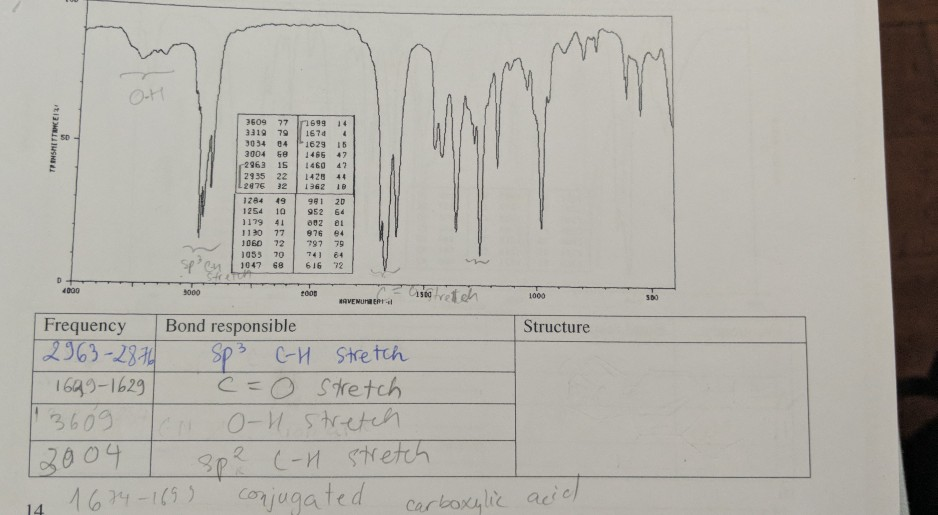 100
O-H
TRANSMITTANCE(%)
50
3609 77 1699 14
3319 79 1674 4
3034 84 1629 16
3004 68 1486 47
2963 15 1460 47
2935 22 1428 44
2876 32 1362 18
1284 49 981 20
1254 10 952 64
1179 41 882 81
1130 77 876 84
1060 72 797 79
1053 70 741 64
1047 68 616 72
sp³ CH
stretch
C=O stretch
0
4000 3000 2000 1500 1000 500
WAVENUMBER(-1)
Frequency Bond responsible Structure
2963-2876 sp³ C-H stretch
1699-1629 C=O stretch
3609 O-H stretch
3004 sp² C-H stretch
1674-1699 conjugated carboxylic acid
14